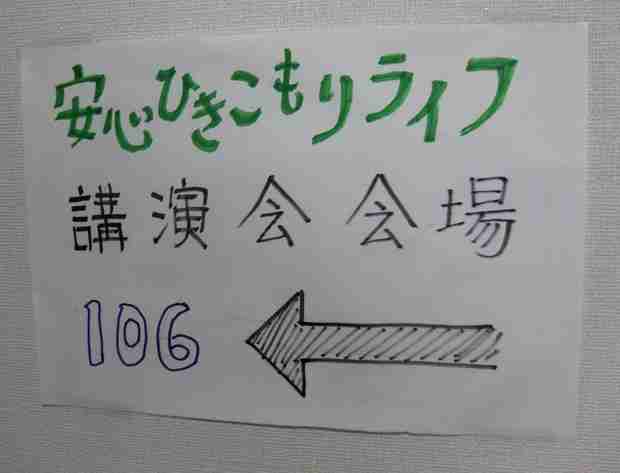 安心ひきこもりライフ
講演会会場
106